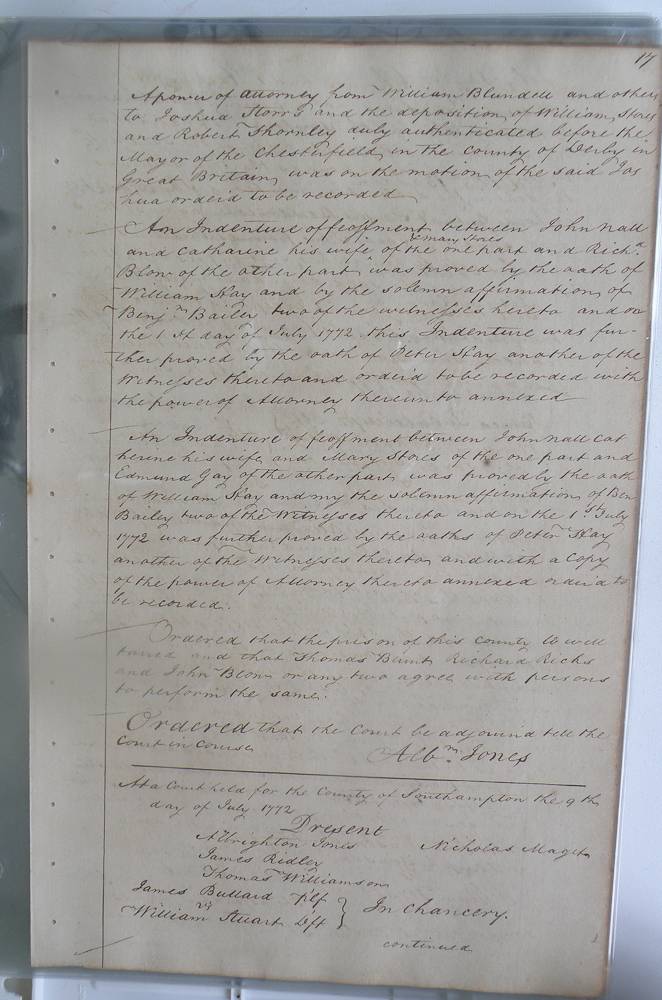 17
A power of Attorney from William Blundell and others
to Joshua Storrs and the deposition of William Stores
and Robert Thornley duly authenticated before the
Mayor of the Chesterfield in the County of Derby in
Great Britain was on the motion of the said Jos
hua order'd to be recorded
An Indenture of feoffment between John nall
& mary Stores
and Catharine his wife of the one part and Rich.d
Blow of the other part was proved by the oath of
William Hay and by the solemn affirmation of
Benj.n Bailey two of the witnesses hereto and on
the 1 st day of July 1772 this Indenture was fur-
ther proved by the oath of Peter Hay another of the
Witnesses thereto and order'd to be recorded with
the power of Attorney thereunto annexed
An Indenture of feoffment between John nall Cat
herine his wife and Mary Stores of the one part and
Edmund Gay of the other part was proved by the oath
of William Hay and my the solemn affirmation of Ben
Bailey two of the Witnesses thereto and on the 1st July
1772 was further proved by the oaths of Peter Hay
another of the Witnesses thereto and with a Copy
of the power of Attorney thereto annexed order'd to
be recorded.
Ordered that the prison of this County be well
tarred and that Thomas Richard Ricks
and John Blow or any two agree with persons
to perform the same.
Ordered that the Court be adjourn'd till the
Court in Course
Alb.n Jones
At a Court held for the County of Southampton the 9th
day of July 1772
Present
Albrighton Jones Nicholas Maget
James Ridley
Thomas Williamson
James Bullard Plf
vs In Chancery.
William Stuart Dft
continued